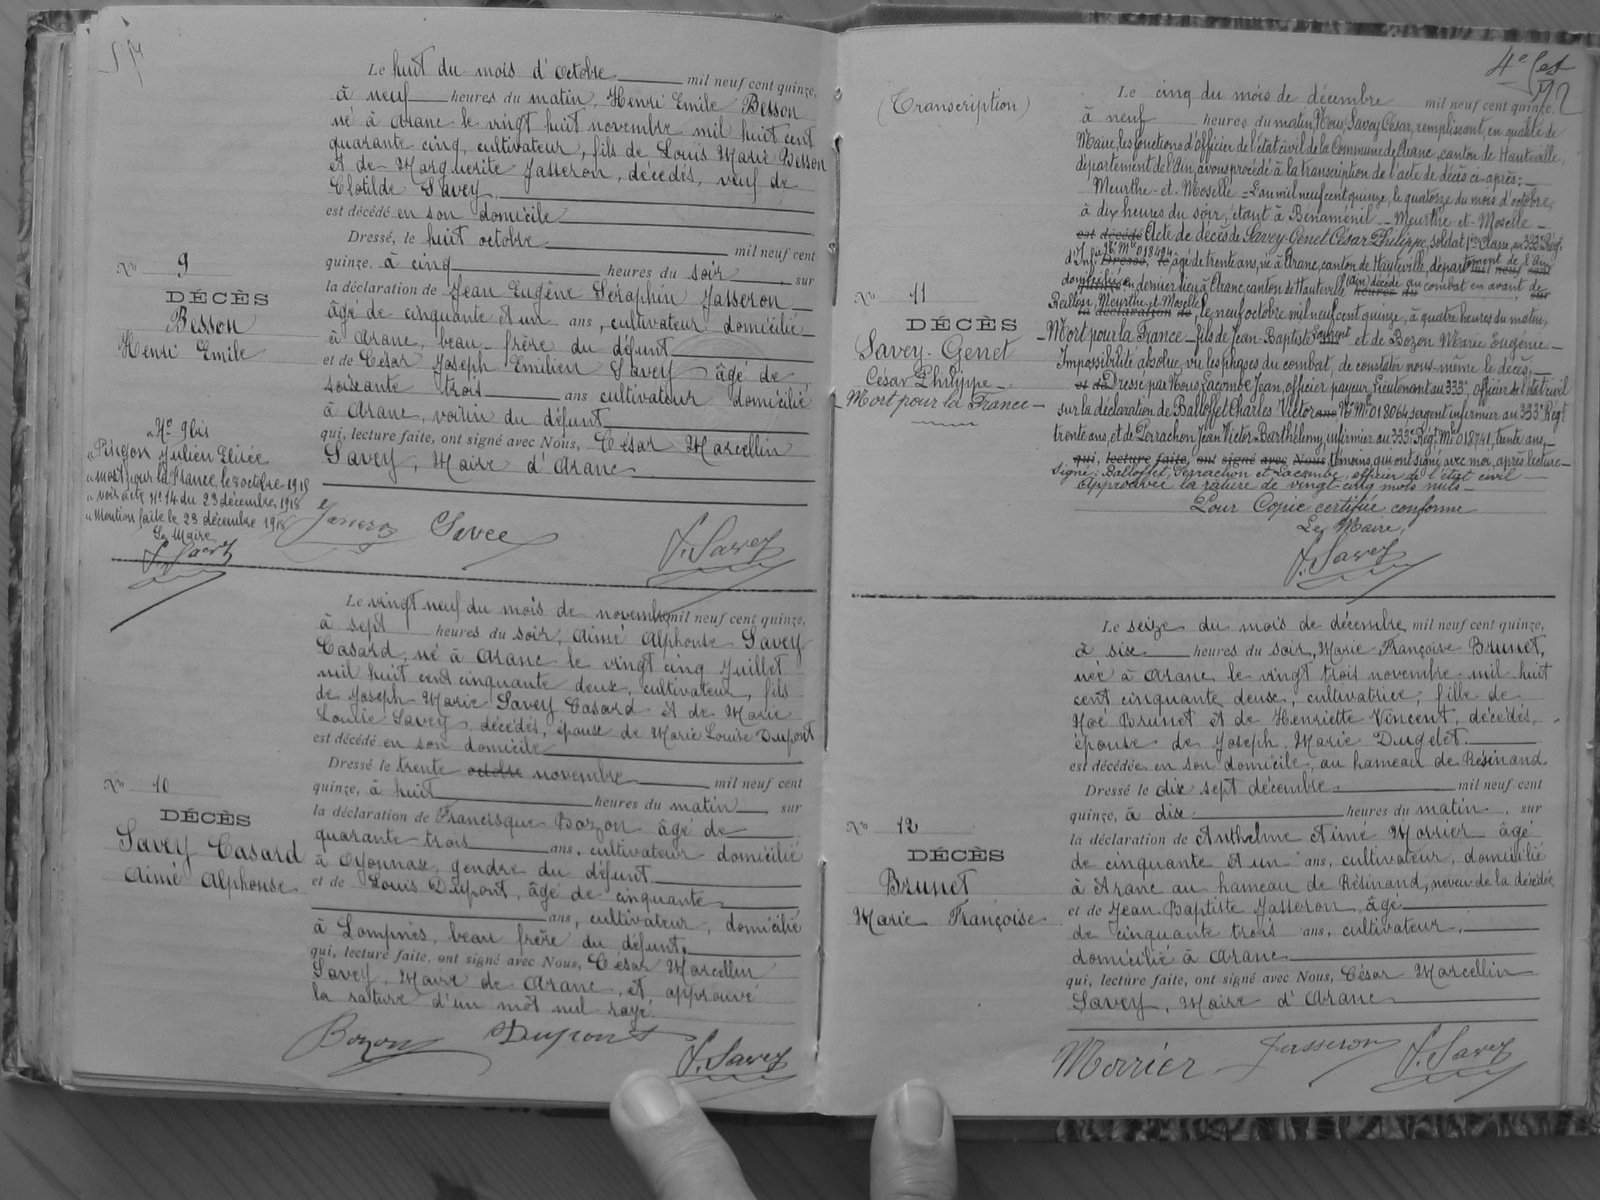 Le huit du mois d'Octobre mil neuf cent quinze,
à neuf heures du matin, Henri Emile Besson
né à Aranc le vingt huit novembre mil huit cent
quarante cinq, cultivateur, fils de Louis Marie Besson
et de Marguerite Jasseron, décédés, veuf de
Clotilde Savey
est décédé en son domicile
Dressé, le huit octobre mil neuf cent
quinze, à cinq heures du soir, sur
la déclaration de Jean Eugène Séraphin Jasseron
âgé de cinquante et un ans, cultivateur domicilié
à Aranc, beau-frère du défunt
et de César Joseph Emilien Savey âgé de
soixante trois ans cultivateur domicilié
à Aranc, voisin du défunt
qui, lecture faite, ont signé avec Nous, César Marcellin
Savey, Maire d'Aranc
No 9
DÉCÈS
Besson
Henri Emile
No 9bis
Pingon Julien Elisée
mort pour la France, le 8 octobre 1915
voir acte No 14 du 23 décembre 1918
Mention faite le 23 décembre 1918
Le Maire
Jasseron Savey
Le vingt neuf du mois de novembre mil neuf cent quinze,
à sept heures du soir, Aimé Alphonse Savey
Casard, né à Aranc le vingt cinq Juillet
mil huit cent cinquante deux, cultivateur, fils
de Joseph Marie Savey Casard et de Marie
Louise Savey, décédés, époux de Marie Louise Dupont
est décédé en son domicile
Dressé le trente octobre novembre mil neuf cent
quinze, à huit heures du matin sur
la déclaration de Francisque Bozon âgé de
quarante trois ans, cultivateur domicilié
à Oyonnax, gendre du défunt
et de Louis Dupont, âgé de cinquante
ans, cultivateur, domicilié
à Lompnès, beau frère du défunt
qui, lecture faite, ont signé avec Nous, César Marcellin
Savey, Maire de Aranc, et approuvé
la rature d'un mot nul rayé
No 10
DÉCÈS
Savey Casard
Aimé Alphonse
Bozon Dupont Savey
4e
12
(Transcription)
Le cinq du mois de décembre mil neuf cent quinze.
à neuf heures du matin, Nous, Savey César, remplissant, en qualité de
Maire, les fonctions d'officier de l'état civil de la Commune de Aranc, canton de Hauteville,
département de l'Ain, avons procédé à la transcription de l'acte de décès ci-après:
Meurthe-et-Moselle = L'an mil neuf cent quinze, le quatorze du mois d'octobre,
à dix heures du soir, étant à Bénaménil - Meurthe-et-Moselle
est décédé Acte de décès de Savey-Genet César Philippe, soldat 1ère classe, au 333e Régt
d'Infie No Mle 018494 Dressé, le âgé de trente ans, né à Aranc, canton de Hauteville, département de l'Ain
domicilié en dernier lieu à Aranc canton de Hauteville (Ain) décédé au combat en avant de
heures du sur
Raillon, Meurthe et Moselle, le neuf octobre mil neuf cent quinze, à quatre heures du matin,
la déclaration de
Mort pour la France - fils de Jean-Baptiste Laurent et de Bozon Marie Eugénie -
Impossibilité absolue, vu les phases du combat, de constater nous-même le décès, -
et de Dressé par Nous Lacombe Jean, officier payeur, Lieutenant au 333e, Officier de l'état civil
sur la déclaration de Balloffet Charles Victor ans No Mle 018064 sergent infirmier au 333e Régt
trente ans, et de Perrachon Jean Victor Barthélemy, infirmier au 333e Régt, Mle 018741, trente ans, -
qui, lecture faite, ont signé avec Nous témoins, qui ont signé avec moi, après lecture -
Signé: Balloffet, Perrachon et Lacombe, officier de l'état civil
Approuvée la rature de vingt-cinq mots nuls -
Pour Copie certifiée conforme
Le Maire,
Savey
No 11
DÉCÈS
Savey-Genet
César Philippe
Mort pour la France
Le seize du mois de décembre mil neuf cent quinze,
à six heures du soir, Marie Françoise Brunet,
née à Aranc le vingt trois novembre mil huit
cent cinquante deux, cultivatrice, fille de
Noé Brunet et de Henriette Vincent, décédés,
épouse de Joseph Marie Dugelet
est décédée en son domicile, au hameau de Résinand.
Dressé le dix sept décembre mil neuf cent
quinze, à dix heures du matin, sur
la déclaration de Anthelme Aimé Morrier âgé
de cinquante et un ans, cultivateur, domicilié
à Aranc au hameau de Résinand, neveu de la décédée
et de Jean-Baptiste Jasseron, âgé
de cinquante trois ans, cultivateur,
domicilié à Aranc
qui, lecture faite, ont signé avec Nous, César Marcellin
Savey, Maire d'Aranc
No 12
DÉCÈS
Brunet
Marie Françoise
Morrier Jasseron Savey